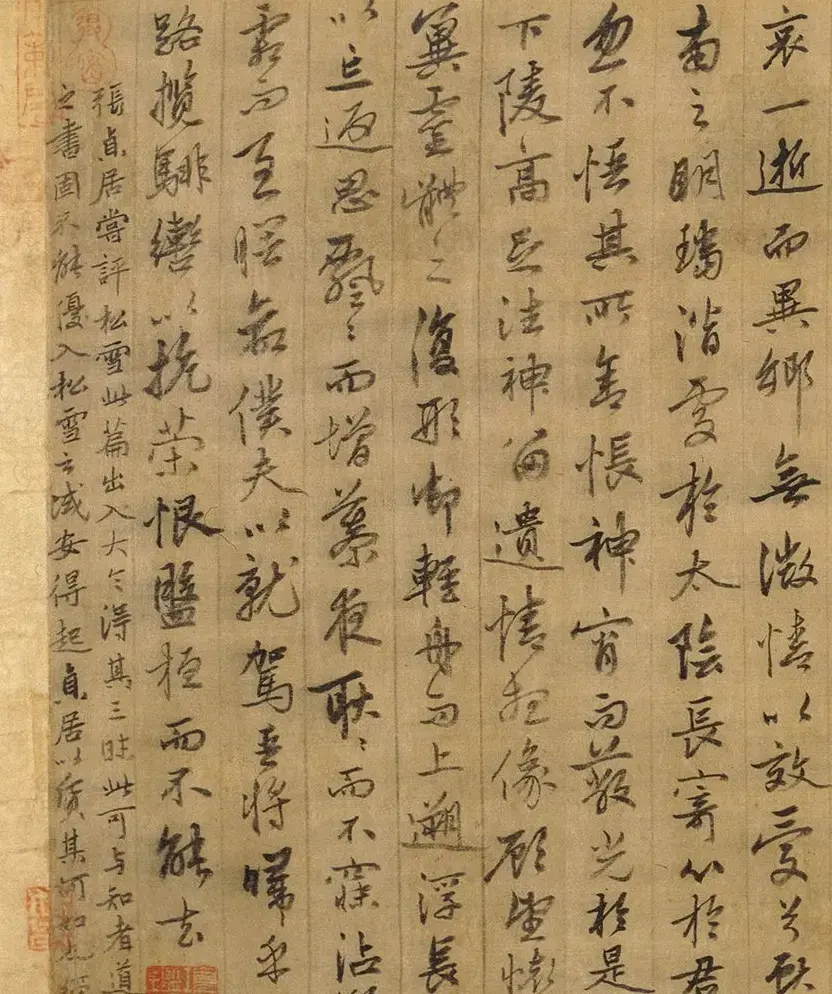 哀一逝而異鄉無微情以效愛兮獻
南之明璫潛處於太陰長寄心於君
忽不悟其所舍悵神宵而蔽光於是
下陵高足往神留遺情想像顧望懷
冀靈體之復形御輕舟而上遡浮長
以忘返思飄〻而增慕夜耿〻而不寐沾
霜而至曙命僕夫以就駕吾將歸乎
路攬騑轡以抗策恨盤桓而不能去
張貞居嘗評松雪此篇出入大令得其三昧此可与知者道
之書固不能優入松雪之域安得起貞居以質其何如也